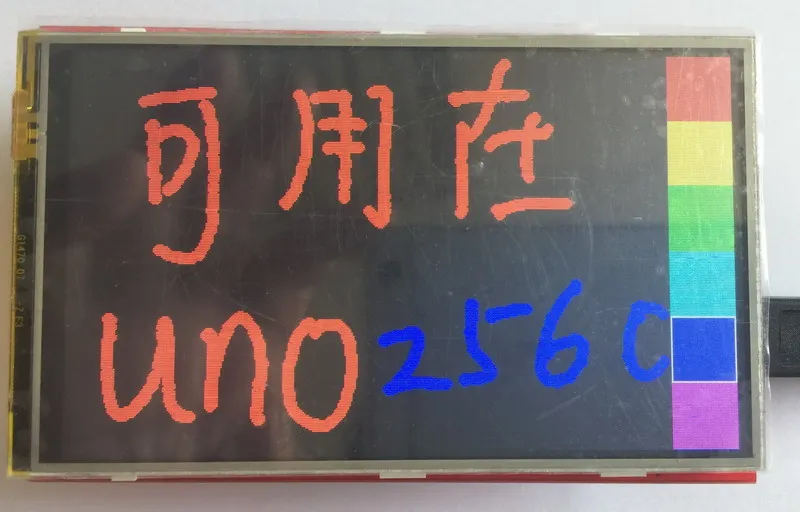 可用在
uno 2560